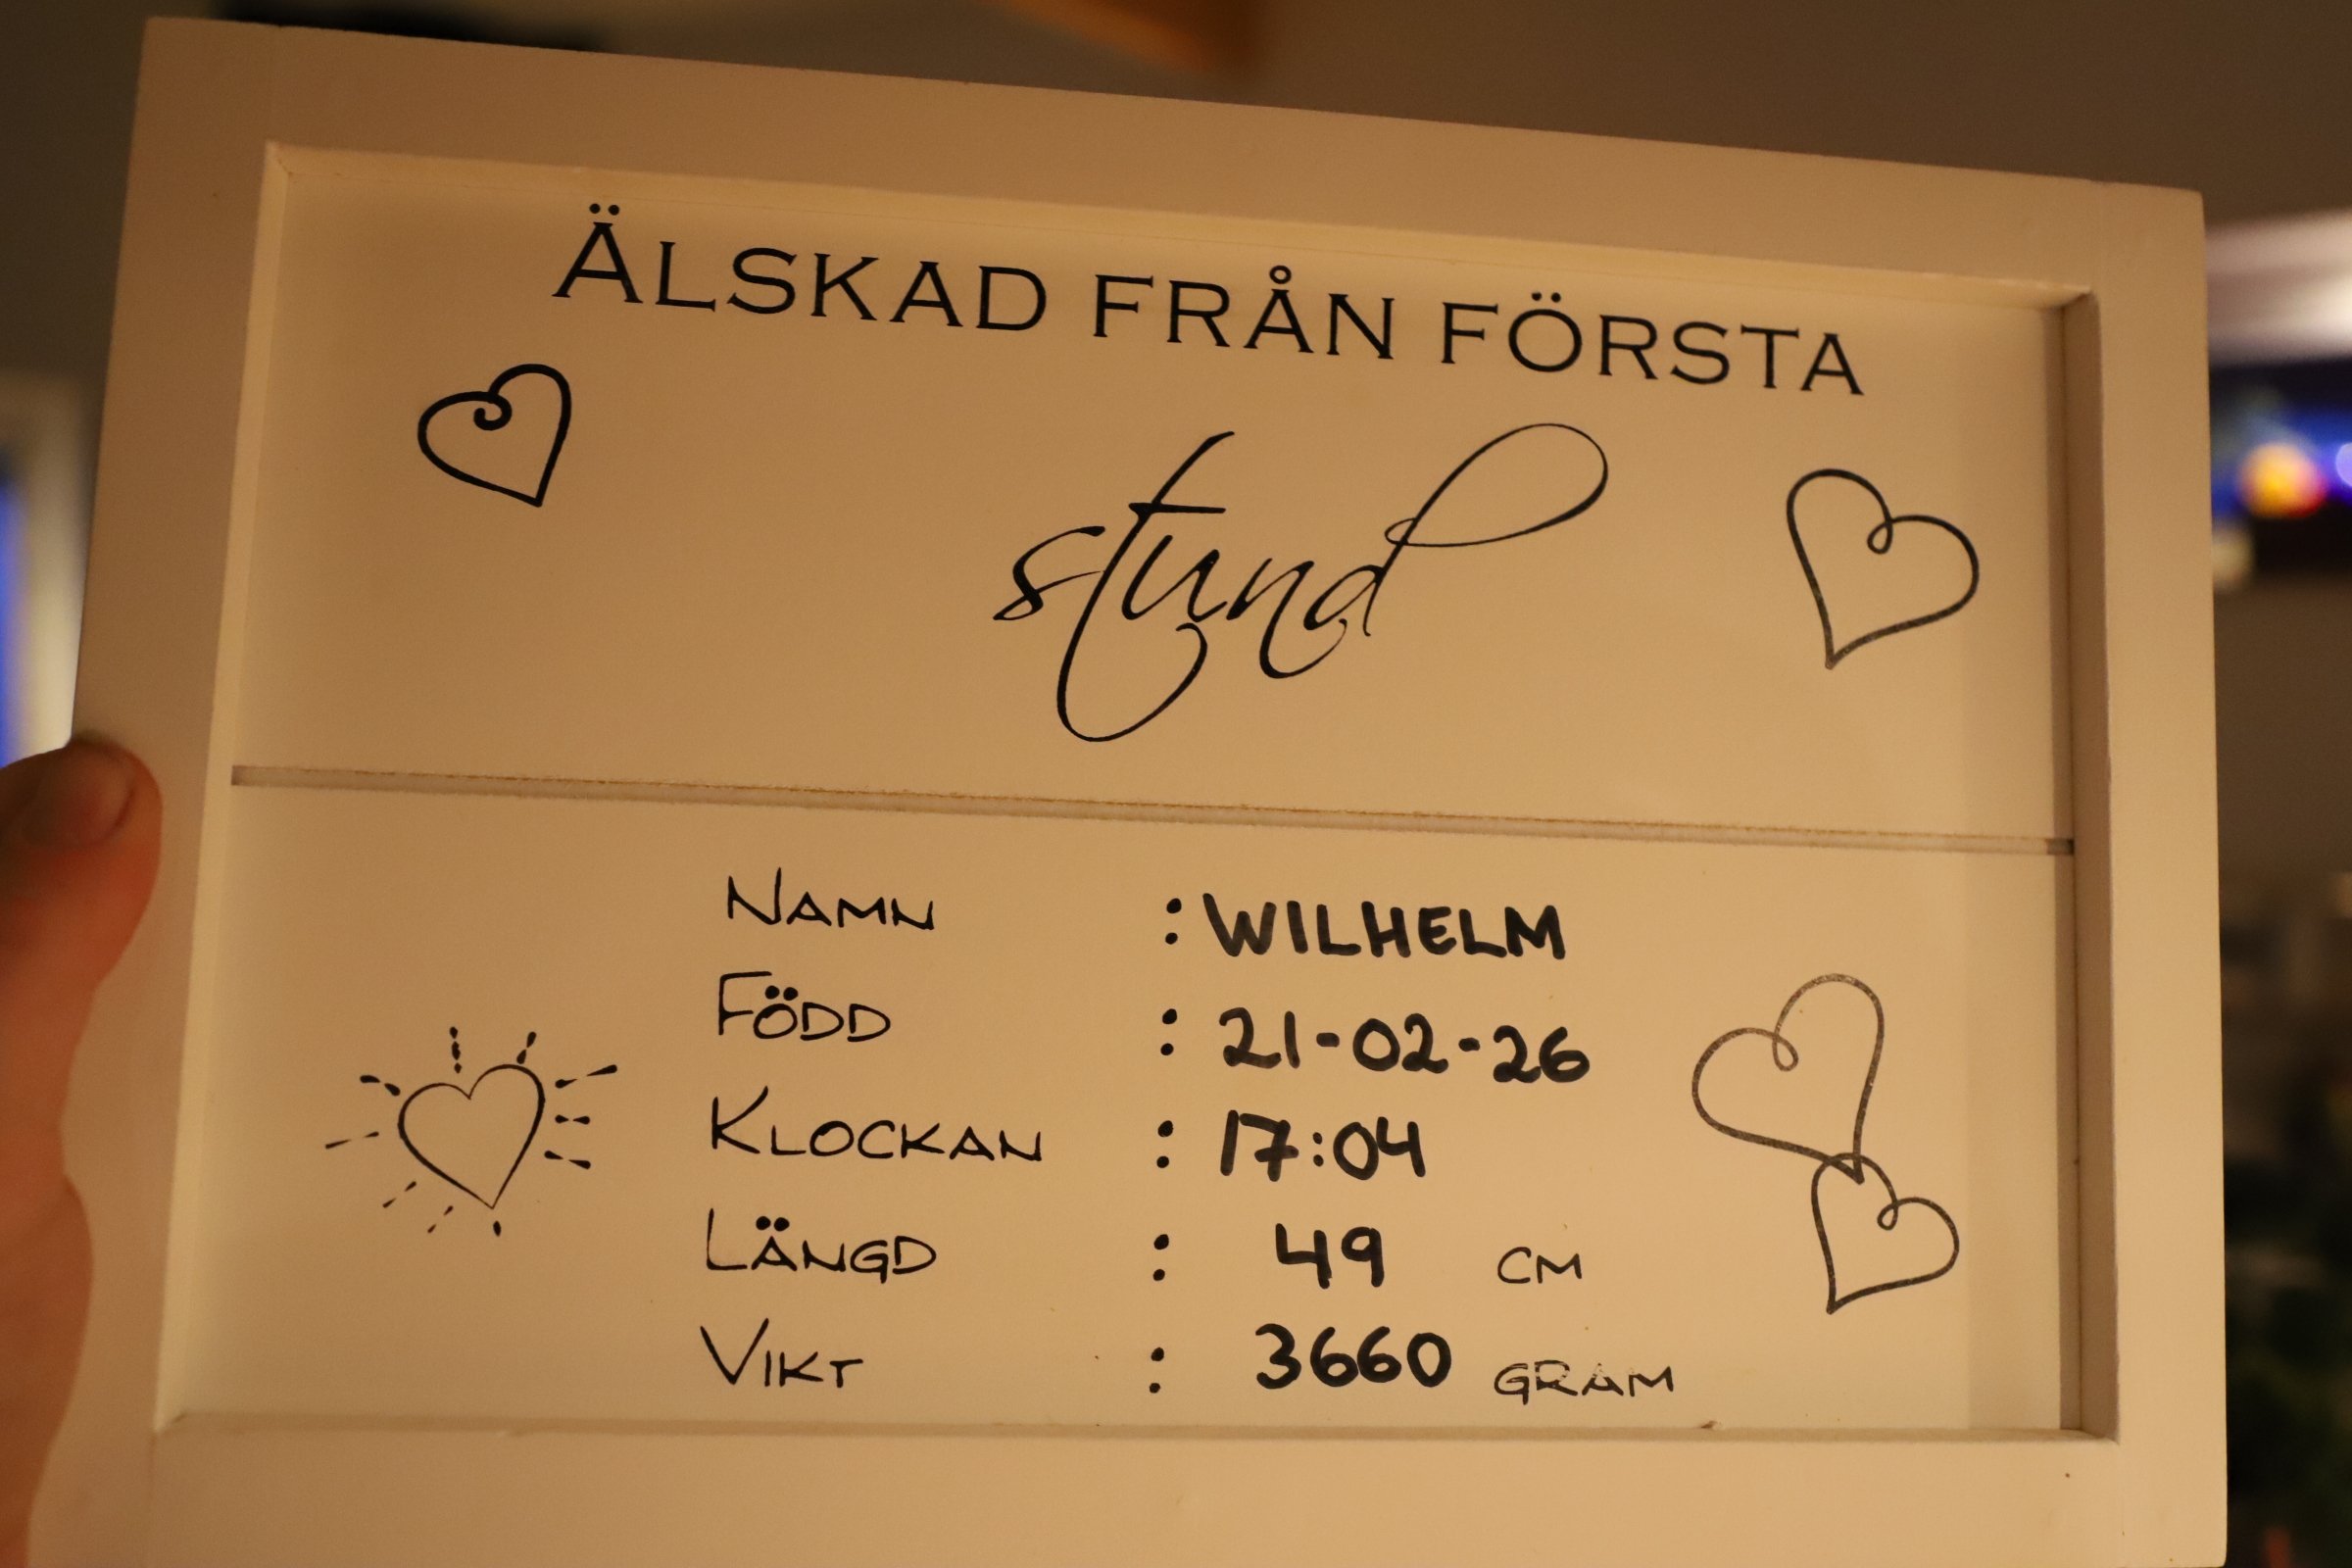 ÄLSKAD FRÅN FÖRSTA
stund
NAMN : WILHELM
FÖDD : 21-02-26
KLOCKAN : 17:04
LÄNGD : 49 CM
VIKT : 3660 GRAM